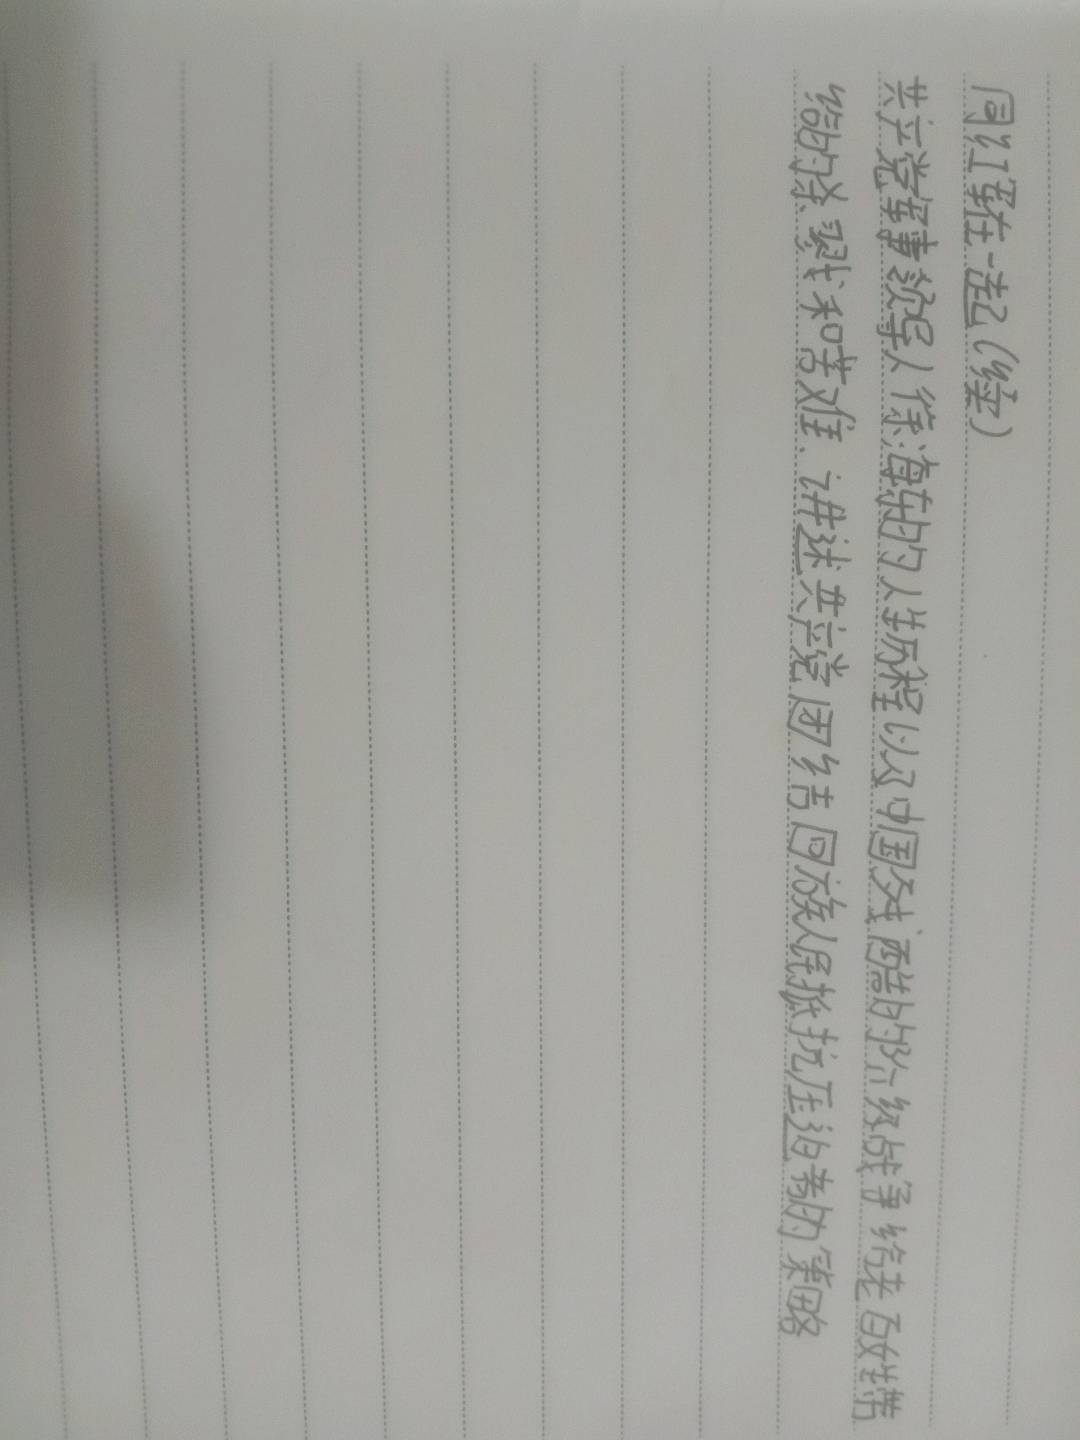 同红军在一起(续)
共产党军事领导人徐海东的人生历程以及中国残酷的阶级战争给老百姓带
给的杀戮和苦难、讲述共产党团结回族人民抵抗压迫者的策略